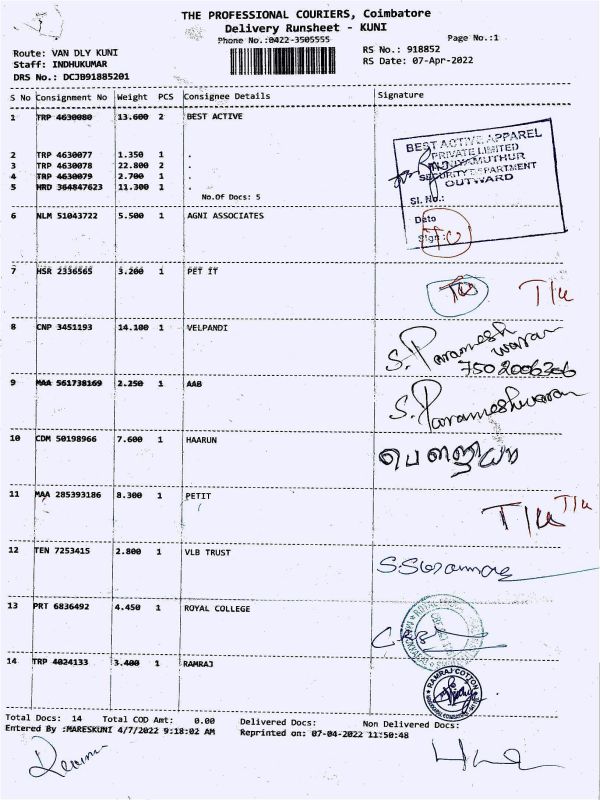 THE PROFESSIONAL COURIERS, Coimbatore
Delivery Runsheet - KUNI
Phone No.:0422-3505555
Page No.:1
Route: VAN DLY KUNI
Staff: INDHUKUMAR
DRS No.: DCJB91885201
RS No.: 918852
RS Date: 07-Apr-2022
S No Consignment No Weight PCS Consignee Details Signature
1 TRP 4630080 13.600 2 BEST ACTIVE
2 TRP 4630077 1.350 1 .
3 TRP 4630078 22.800 2 .
4 TRP 4630079 2.700 1 .
5 HRD 364847623 11.300 1 .
No.Of Docs: 5
BEST ACTIVE APPAREL
PRIVATE LIMITED
SECURITY DEPARTMENT
OUTWARD
Sl. No.:
Date
Sign:
6 NLM 51043722 5.500 1 AGNI ASSOCIATES
7 HSR 2336565 3.200 1 PET IT
T/u
8 CNP 3451193 14.100 1 VELPANDI
S. Paramesh
waran
7502006306
9 MAA 561738169 2.250 1 AAB
S. Parameshwaran
10 CDM 50198966 7.600 1 HAARUN
11 MAA 285393186 8.300 1 PETIT
T/u T/u
12 TEN 7253415 2.800 1 VLB TRUST
13 PRT 6836492 4.450 1 ROYAL COLLEGE
14 TRP 4024133 3.400 1 RAMRAJ
RAMRAJ COTTON
Total Docs: 14 Total COD Amt: 0.00 Delivered Docs: Non Delivered Docs:
Entered By :MARESKUNI 4/7/2022 9:18:02 AM Reprinted on: 07-04-2022 11:50:48